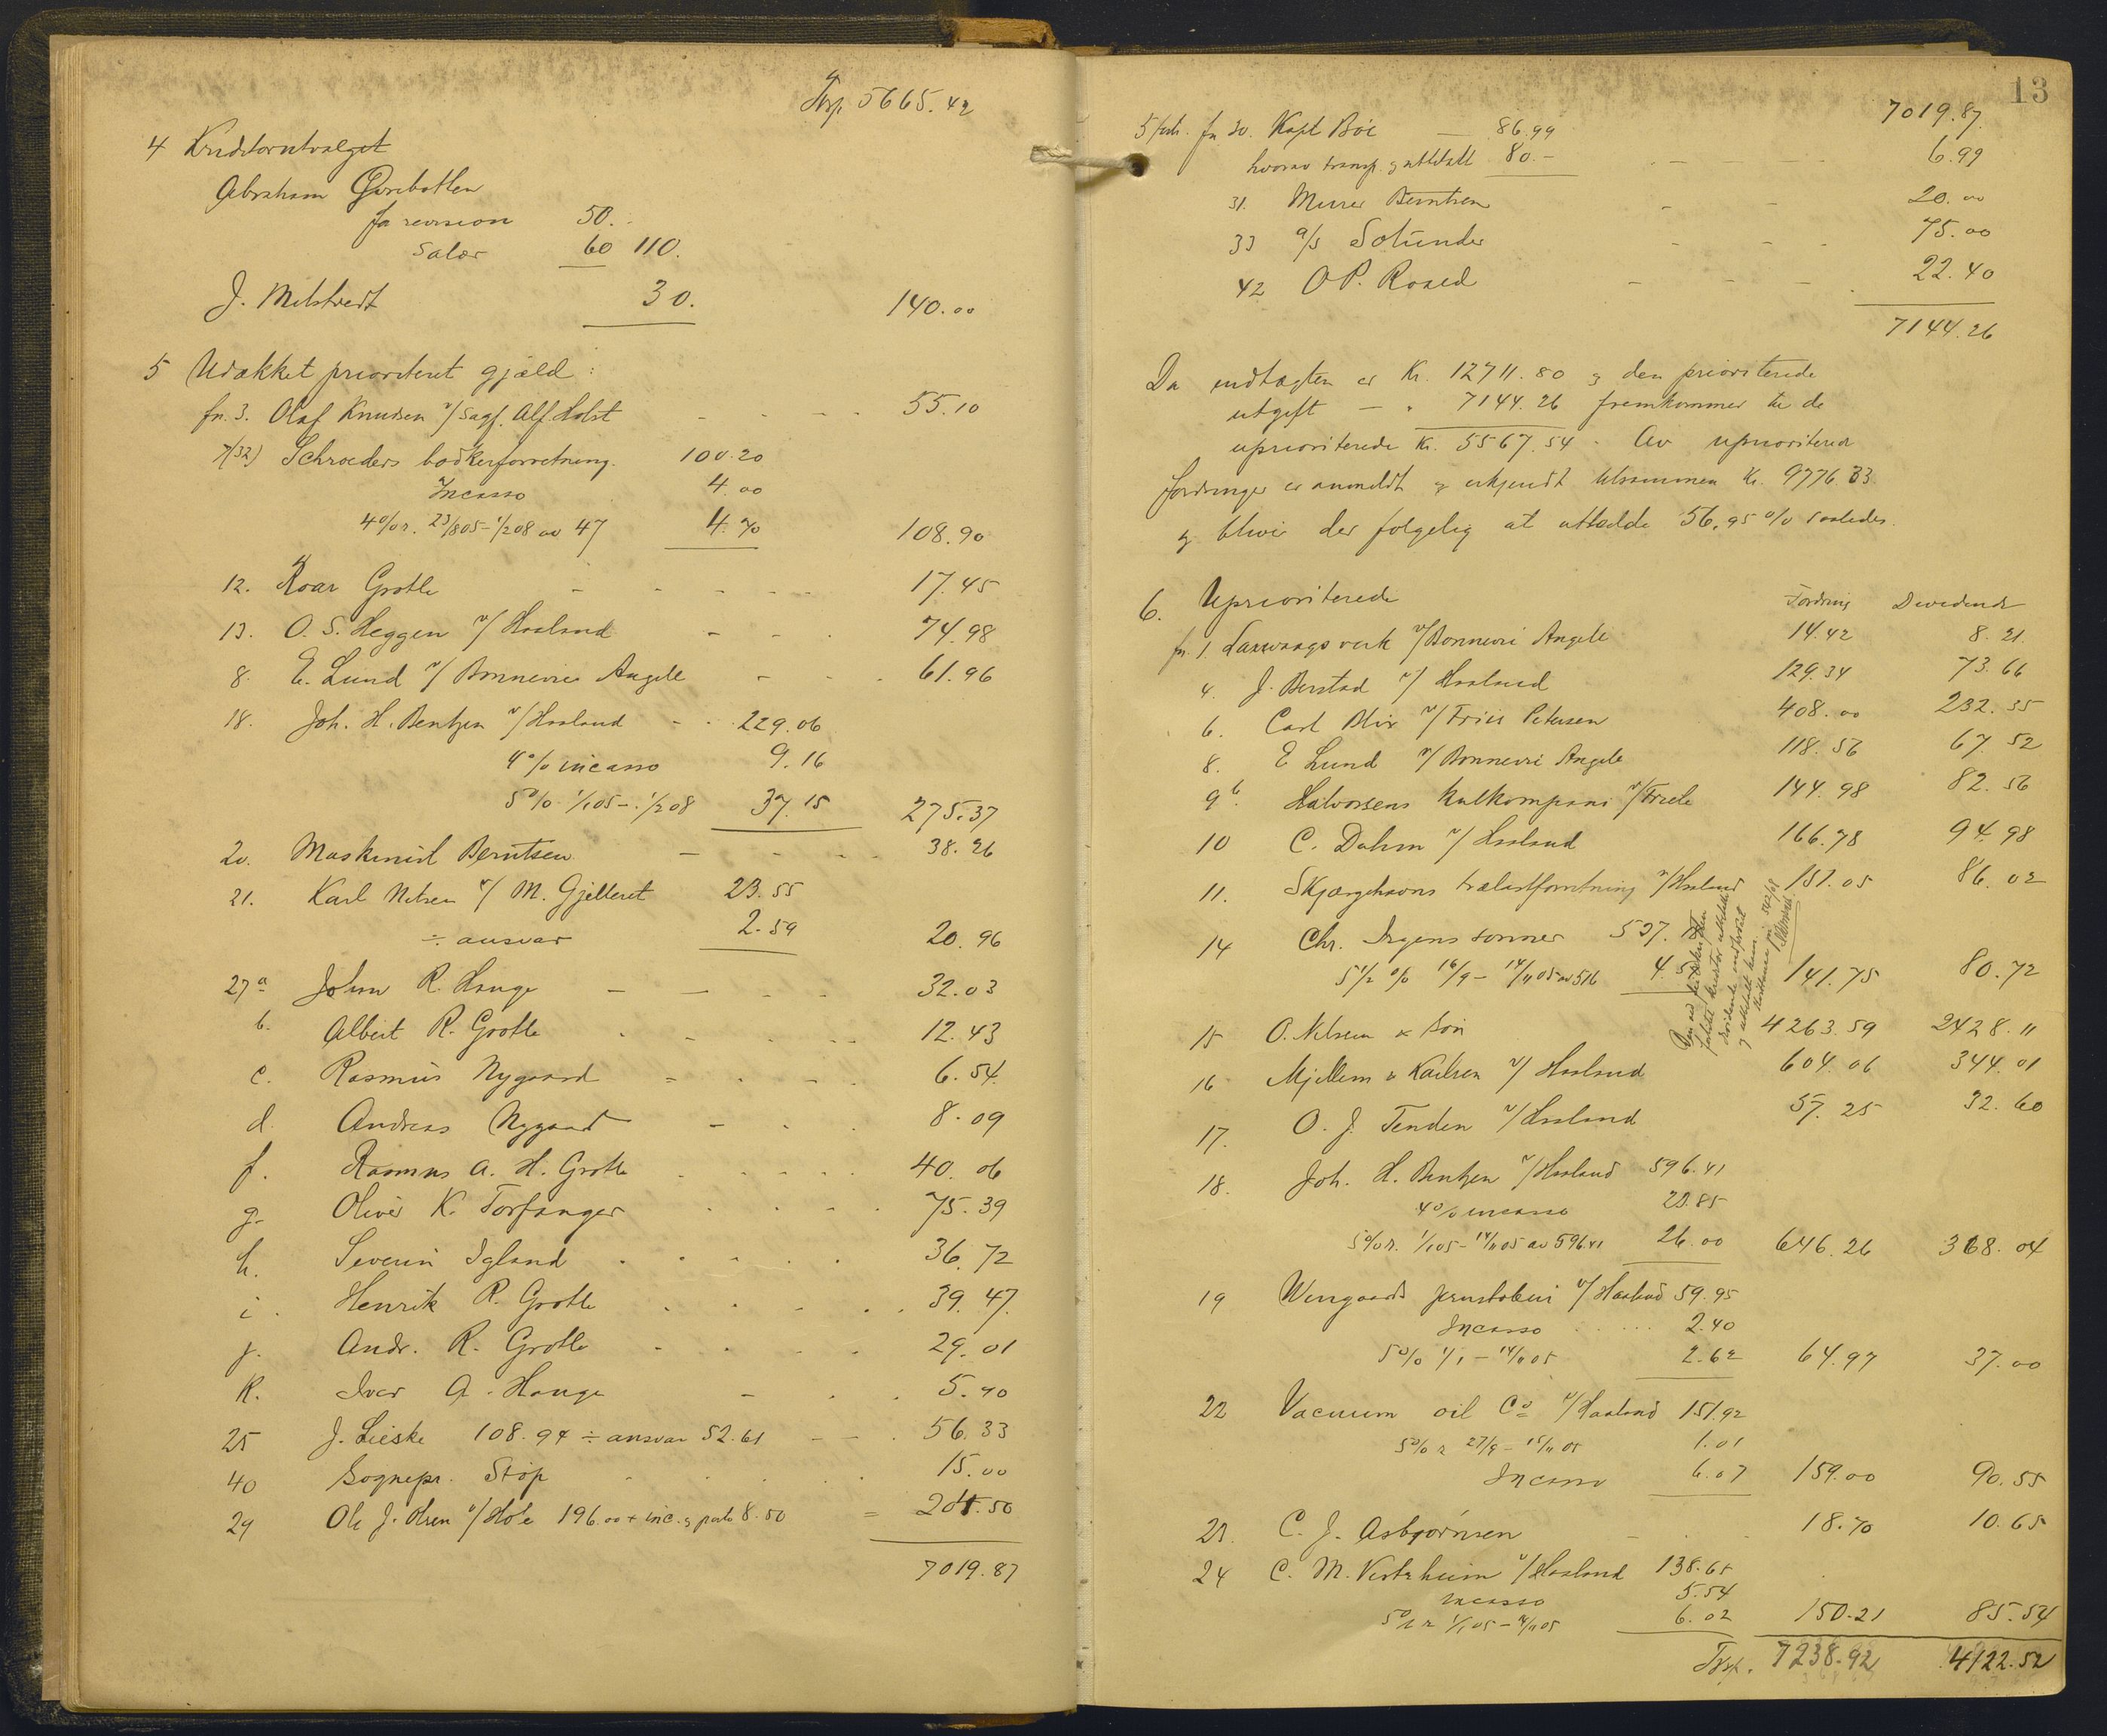 Trsp. 5665.42
4 Kreditorutvalget
Abraham
for revision 50.-
Salær 60 110.
J. Miltvedt 30. 140.00
5 Udækket prioritert gjæld:
fn. 3. Olaf Knudsen v/ Sagf. Alf. Holst - - - - 55.10
7/32) Schrøders bødkerforretning. 100.20
Incasso 4.00
4 % r. 23/805 - 1/208 av 47 4.70 108.90
12. Roar Grotle - - - - - 17.45
13. O. S. Heggen v/ Haaland - - - 74.98
8. E. Lund v/ Bonnevie Angell - - - 61.96
18. Joh. H. Bentzen v/ Haaland - - 229.06
4 % incasso 9.16
5 % 1/105 - 1/208 37.15 275.37
20. Maskinist Berntsen - - - - 38.26
21. Karl Nilsen v/ M. Gjelleret 23.55
÷ ansvar 2.59 20.96
27a John R. Hauge - - - - 32.03
b. Albert R. Grotle - - - - 12.43
c. Rasmus Nygaard - - - - 6.54
d. Andreas Nygaard - - - 8.09
f. Rasmus A. H. Grotle - - - - 40.06
g. Oliver K. Torfanger - - - - 75.39
h. Severin Igland - - - - - 36.72
i. Henrik R. Grotle - - - - - 39.47.
j. Andr. R. Grotle - - - - 29.01
k. Ivar A. Hauge - - - 5.40
25 J. Lieske 108.94 ÷ ansvar 52.61 - - - 56.33
40 Sognepr. Støp - - - - 15.00
29 Ole J. Olsen v/ Hole 196.00 + inc. & porto 8.50 = 204.50
7019.87
13
7019.87.
5 forts. fn 30. Kapt Bøe — 86.99
hvorav transp. & utbetalt 80.- - - - 6.99
31. Murer Berntsen - - 20.00
33 a/s Solunder - - - 75.00
42 O P. Rosed - - - - 22.40
7144.26
Da indtægten er Kr. 12711.80 & den prioriterede
utgift — " 7144.26 fremkommer til de
uprioriterede Kr. 5567.54 - Av uprioriterede
fordringer er anmeldt & erkjendt tilsammen Kr. 9776.33
& bliver der følgelig at utlodde 56,95 % saaledes.
6. Uprioriterede Fordring Dividende
fn. 1. Laxevaags verk v/ Bonnevie Angell 14.42 8.21
4. J. Berstad v/ Haaland 129.34 73.66
6. Carl Blix v/ Friis Petersen 408.00 232.35
8. E Lund v/ Bonnevie Angell 118.56 67.52
9b. Halvorsens kulkompani v/ Friele 144.98 82.56
10 C. Dahm v/ Haaland 166.78 94.98
11. Skjærgehavns trælastforretning v/ Haaland 151.05 86.02
14 Chr. Irgens sønner 537.
5 1/2 % 16/9 - 14/11 05 av 516 4. 141.75 80.72
15 O. Nilsen & Søn 4263.59 2428.11
16 Mjellem & Karlsen v/ Haaland 604.06 344.01
17. O. J. Tenden v/ Haaland 57.25 32.60
18. Joh. H. Bentzen v/ Haaland 596.41
4 % incasso 23.85
5 % r. 1/105 - 14/11 05 av 596.41 26.00 646.26 368.04
19 Wingaards jernstøberi v/ Haaland 59.95
Incasso 2.40
5 % 1/1 - 14/11 05 2.62 64.97 37.00
22 Vacuum oil Co v/ Haaland 151.92
5 % r 27/9 - 15/11 05 1.01
Incasso 6.07 159.00 90.55
23. C. J. Asbjørnsen - - - 18.70 10.65
24 C. M. Vestrheim v/ Haaland 138.65
Incasso 5.54
5 % r 1/1 05 - 14/11 05 6.02 150.21 85.54
Trsp. 7238.92 4122.52